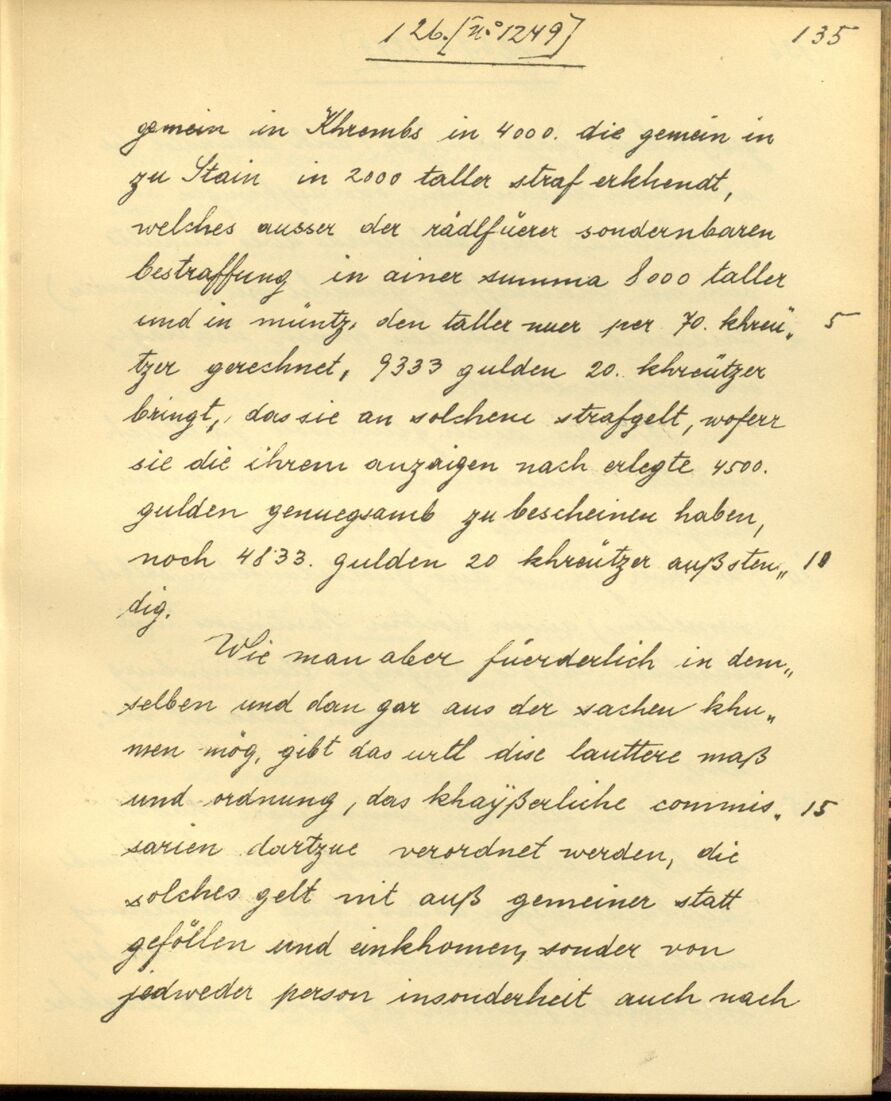 126. [No 1249] 135
gemein in Khrembs in 4000. die gemein in
zu Stain in 2000 taller straf erkhendt,
welches ausser der rädlfüerer sondernbaren
bestraffung in ainer summa 8000 taller
und in müntz, den taller nuer per 70. khreü„ 5
tzer gerechnet, 9333 gulden 20. khreützer
bringt, das sie an solchem strafgelt, woferr
sie die ihrem anzaigen nach erlegte 4500.
gulden genuegsamb zu bescheinen haben,
noch 4833. gulden 20 khreützer außsten„ 10
dig.
Wie man aber füerderlich in dem„
selben und dan gar aus der sachen khu„
men mög, gibt das urtl dise lauttere maß
und ordnung, das khaÿßerliche commis„ 15
sarien dartzue verordnet werden, die
solches gelt nit auß gemeiner statt
geföllen und einkhomen, sonder von
jedweder person insonderheit auch nach